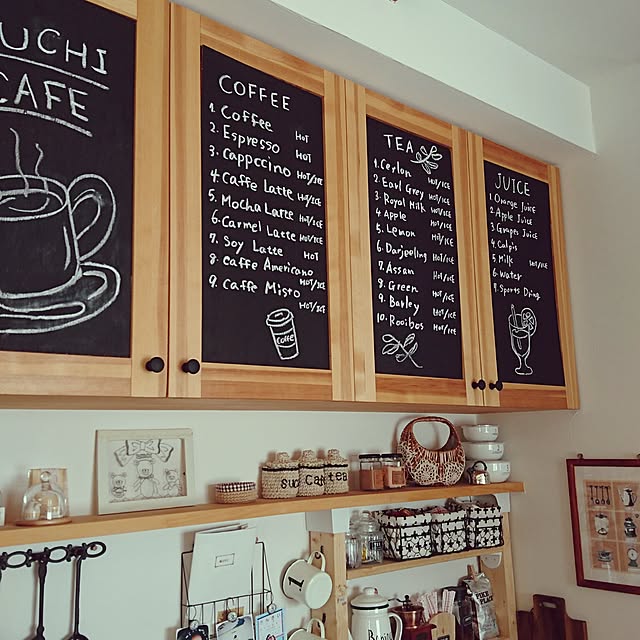 UCHI
CAFE
COFFEE
1. Coffee HOT
2. Espresso HOT
3. Cappccino HOT/ICE
4. Caffe Latte HOT/ICE
5. Mocha Latte HOT/ICE
6. Carmel Latte HOT/ICE
7. Soy Latte HOT
8. Caffe Americano HOT/ICE
9. Caffe Misto HOT/ICE
Coffee
TEA
1. Ceylon HOT/ICE
2. Earl Grey HOT/ICE
3. Royal Milk HOT/ICE
4. Apple HOT/ICE
5. Lemon HOT/ICE
6. Darjeeling HOT/ICE
7. Assan HOT
8. Green HOT/ICE
9. Barley HOT/ICE
10. Rooibos HOT/ICE
JUICE
1. Orange Juice
2. Apple Juice
3. Grapes Juice
4. Calpis
5. Milk HOT/ICE
6. Water
Sports Drink
Caf
tea
1